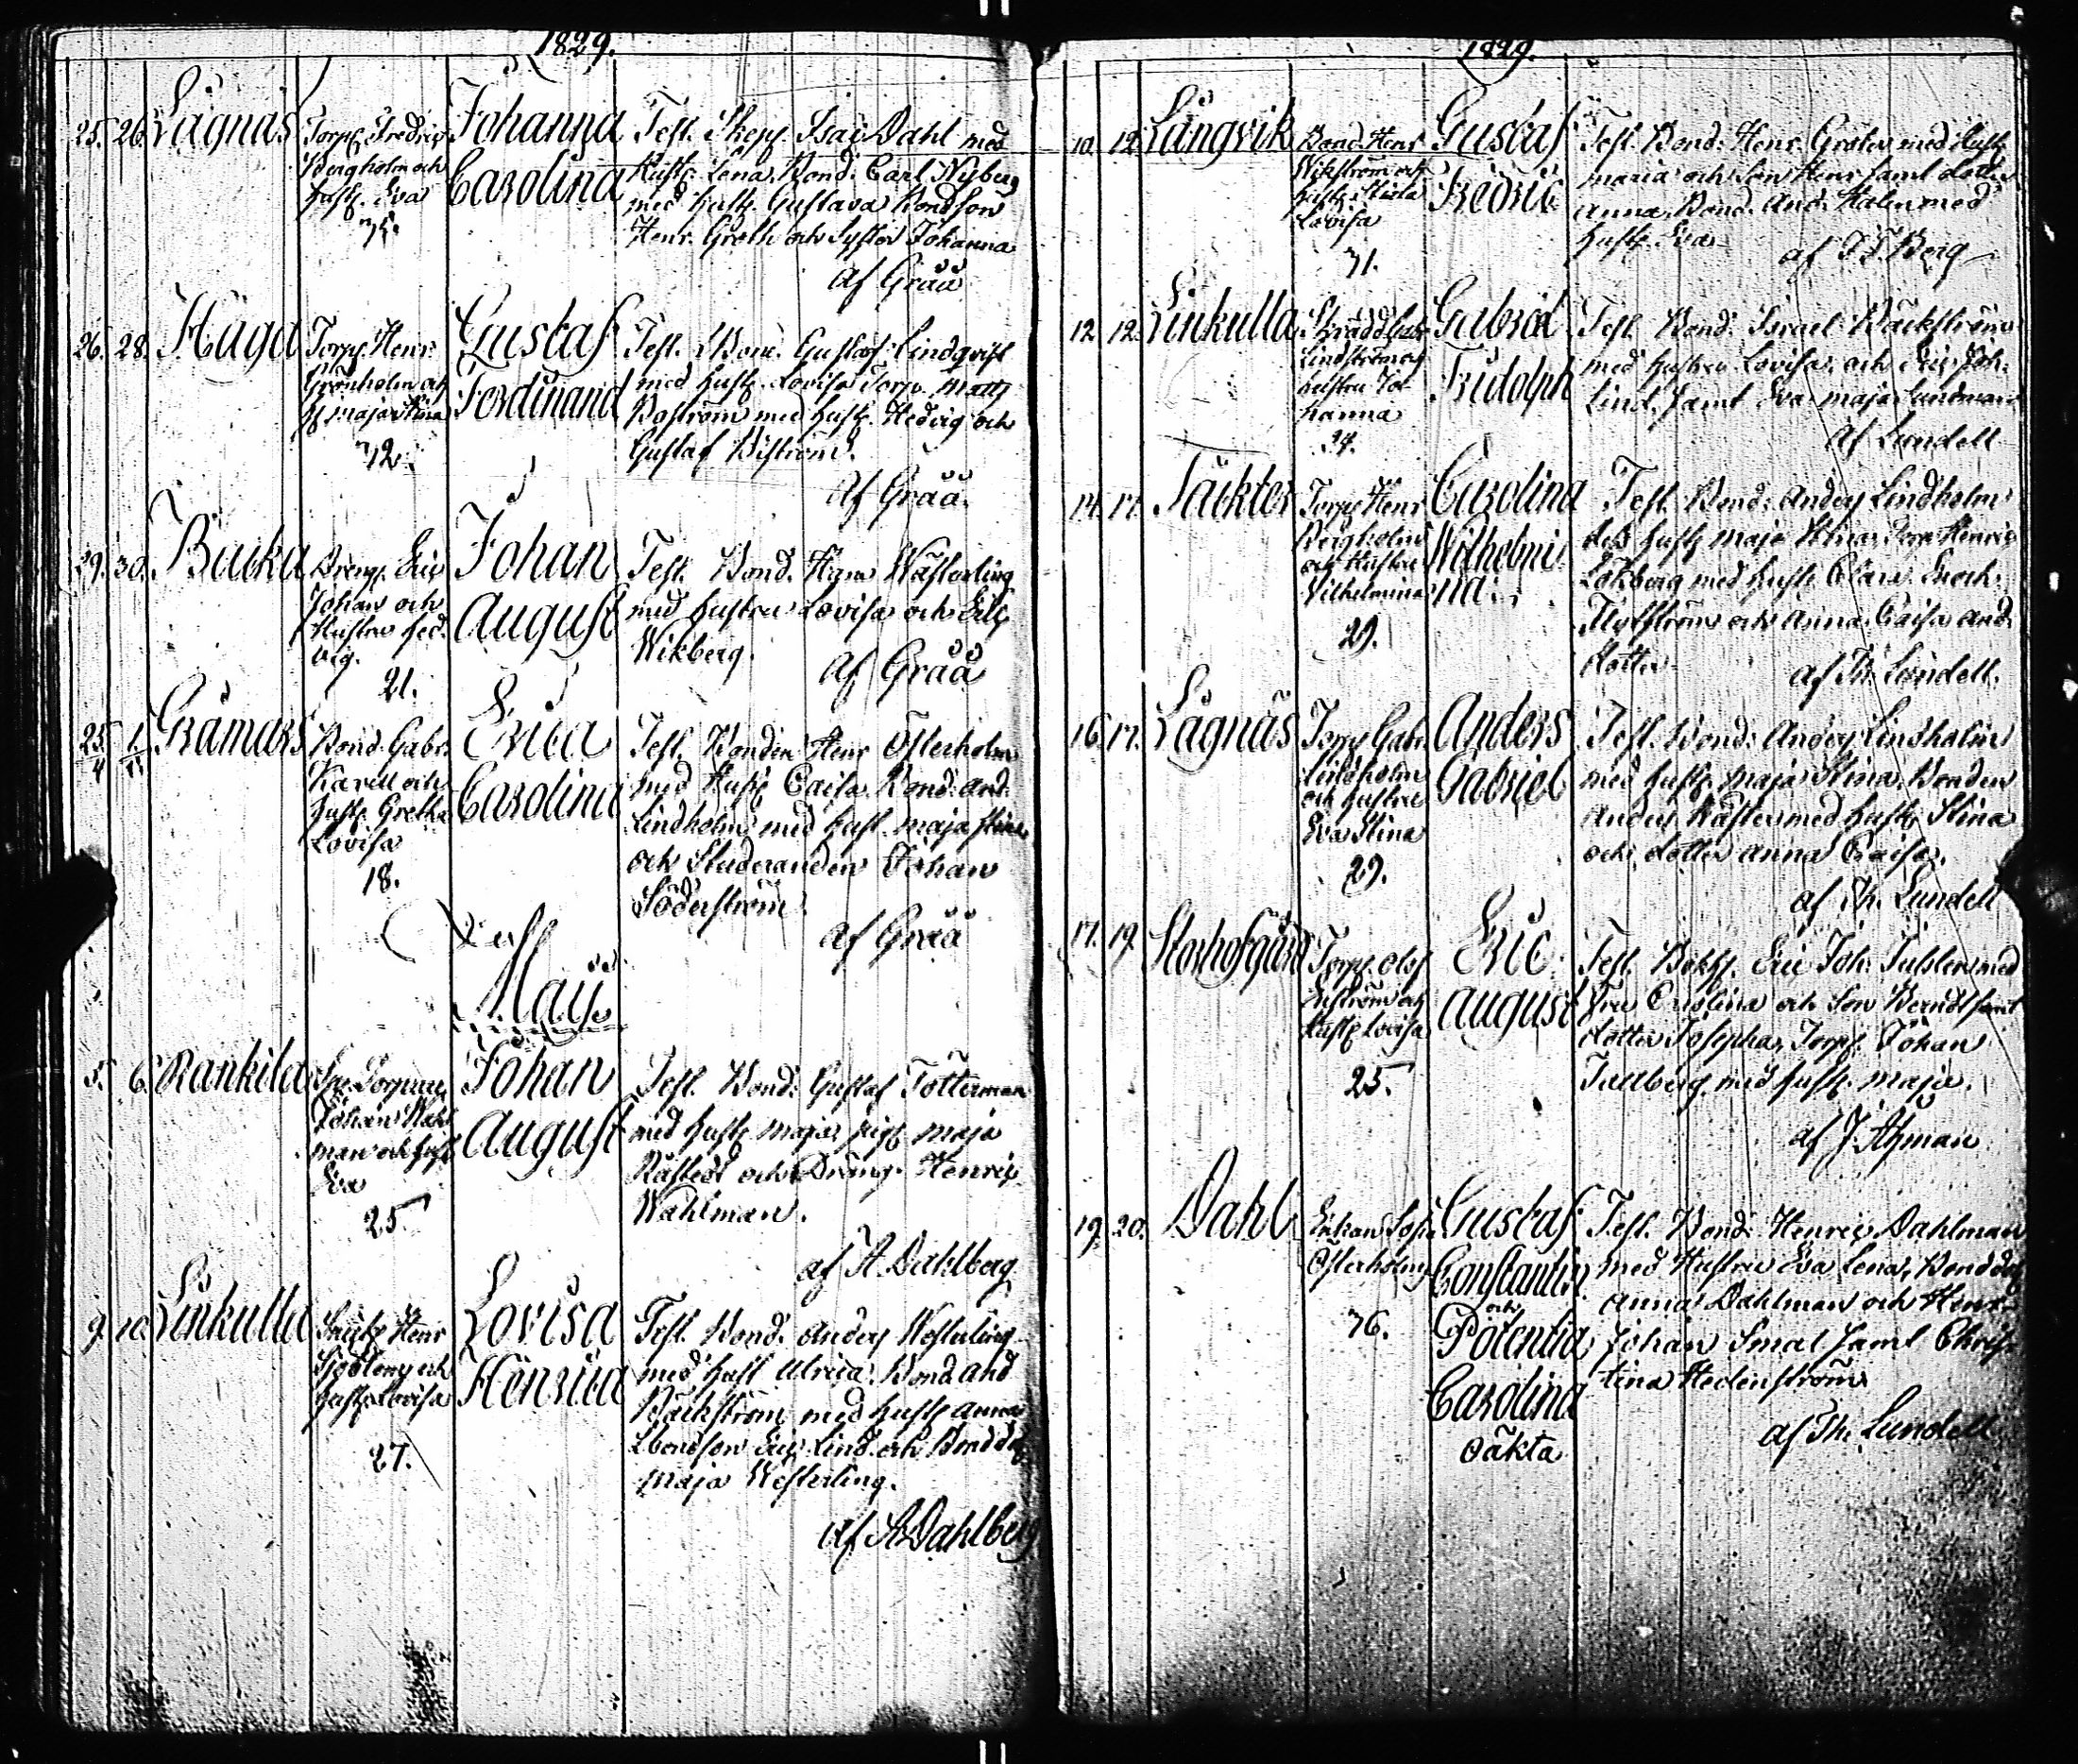 1829.
25. 26. Lägnäs Torp. Fredric Johanna Test. Skepp. Isac Dahl med
Bergholm och Carolina Hustr. Lena, Bond. Carl Nyberg
Hustr. Eva med Hustr. Gustava Bondson
35. Henr. Groth och Syster Johanna
af Gråå
26. 28. Haga Torp. Henr. Gustaf Test. Bond. Gustaf Lindqvist
Grönholm och Ferdinand med Hustr. Lovisa Torp. Matts
H. Maja Stina Boström med Hustr. Hedvig och
32. Gustaf Biström.
af Gråå.
29. 30. Backa Dreng. Eric Johan Test. Bond. Westerling
Johan och August med Hustru Lovisa och
Hustru Hed- Wikberg.
vig. af Gråå
21.
25/4 1. Gråmars Bond. Gabr. Erica Test. Bonden Henr. Österholm
Karell och Carolina med Hustr. Caisa, Bond. And.
Hustr. Gretha Lindholm med Hust. Maja Stina
Lovisa och Studeranden Johan
18. Söderström.
af Gråå
Maij.
5. 6. Rankila Torpare Johan Test. Bond. Gustaf Totterman
Johan Wahl- August med Hustr. Maja, pig. Maja
man och Hust. och Dräng. Henric
Eva Wahlman.
25.
af A. Dahlberg
9. 10. Linkulla Henr. Lovisa Test. Bond. Anders Westerling
Sjöblom och Henrica med Hust. Ulrica, Bond. And.
Hustr. Lovisa Bäckström med Hustr. Anna
27. Bondson Eric Lind och Bonddr.
Maja Westerling.
af A. Dahlberg
1829.
10. 12. Långvik Bond. Henr. Gustaf Test. Bond. Henr. med Hustr.
Wikström och Fredric Maria och Son Henr. samt dotter
Hustr. Anna, Bond. And. Malm med
Lovisa Hustr. Eva
31. af Berg
12. 12. Linkulla Skrädd. Gabr. Gabriel Test. Bond. Israel Bäckström
Lindström och Rudolph med Hustru Lovisa, och Eric Joh.
Hustru Jo- Lind, samt Eva Maja Lundman
hanna af Lundell
34.
14. 17. Täkter Torp. Henr. Carolina Test. Bond. Anders Lindholm
Bergholm Wilhelmi- dess Hustr. Maja Stina, Torp. Henric
och Hustru na. Lökberg med Hustr. Clara, Enoch
Vilhelmina Flytström och Anna Caisa And.
29. dotter af Th. Lundell.
16. 17. Lägnäs Torp. Gabr. Anders Test. Bond. Anders Lindholm
Lindholm Gabriel med Hustr. Maja Stina, Bonden
och Hustru Anders med Hustr. Stina
Eva Stina och dotter Anna Caisa.
29. af Th. Lundell
17. 19. Storhofgård Torp. Olof Eric Test. Eric Joh. med
Enström och August Fru Cristina och Son Berndt samt
Hustr. Lovisa dotter Josepha, Torp. Johan
25. Tallberg med Hustr. Maja.
af J. Åhman
19. 20. Dahl Enkan Sofi Gustaf Test. Bond. Henric Dahlman
Österholm Constantin med Hustru Eva Lena, Bonddr.
76. och Anna Dahlman och Henr.
Potentia Johan Smal samt Chris-
Carolina tina Hedenström
oäkta af Th. Lundell